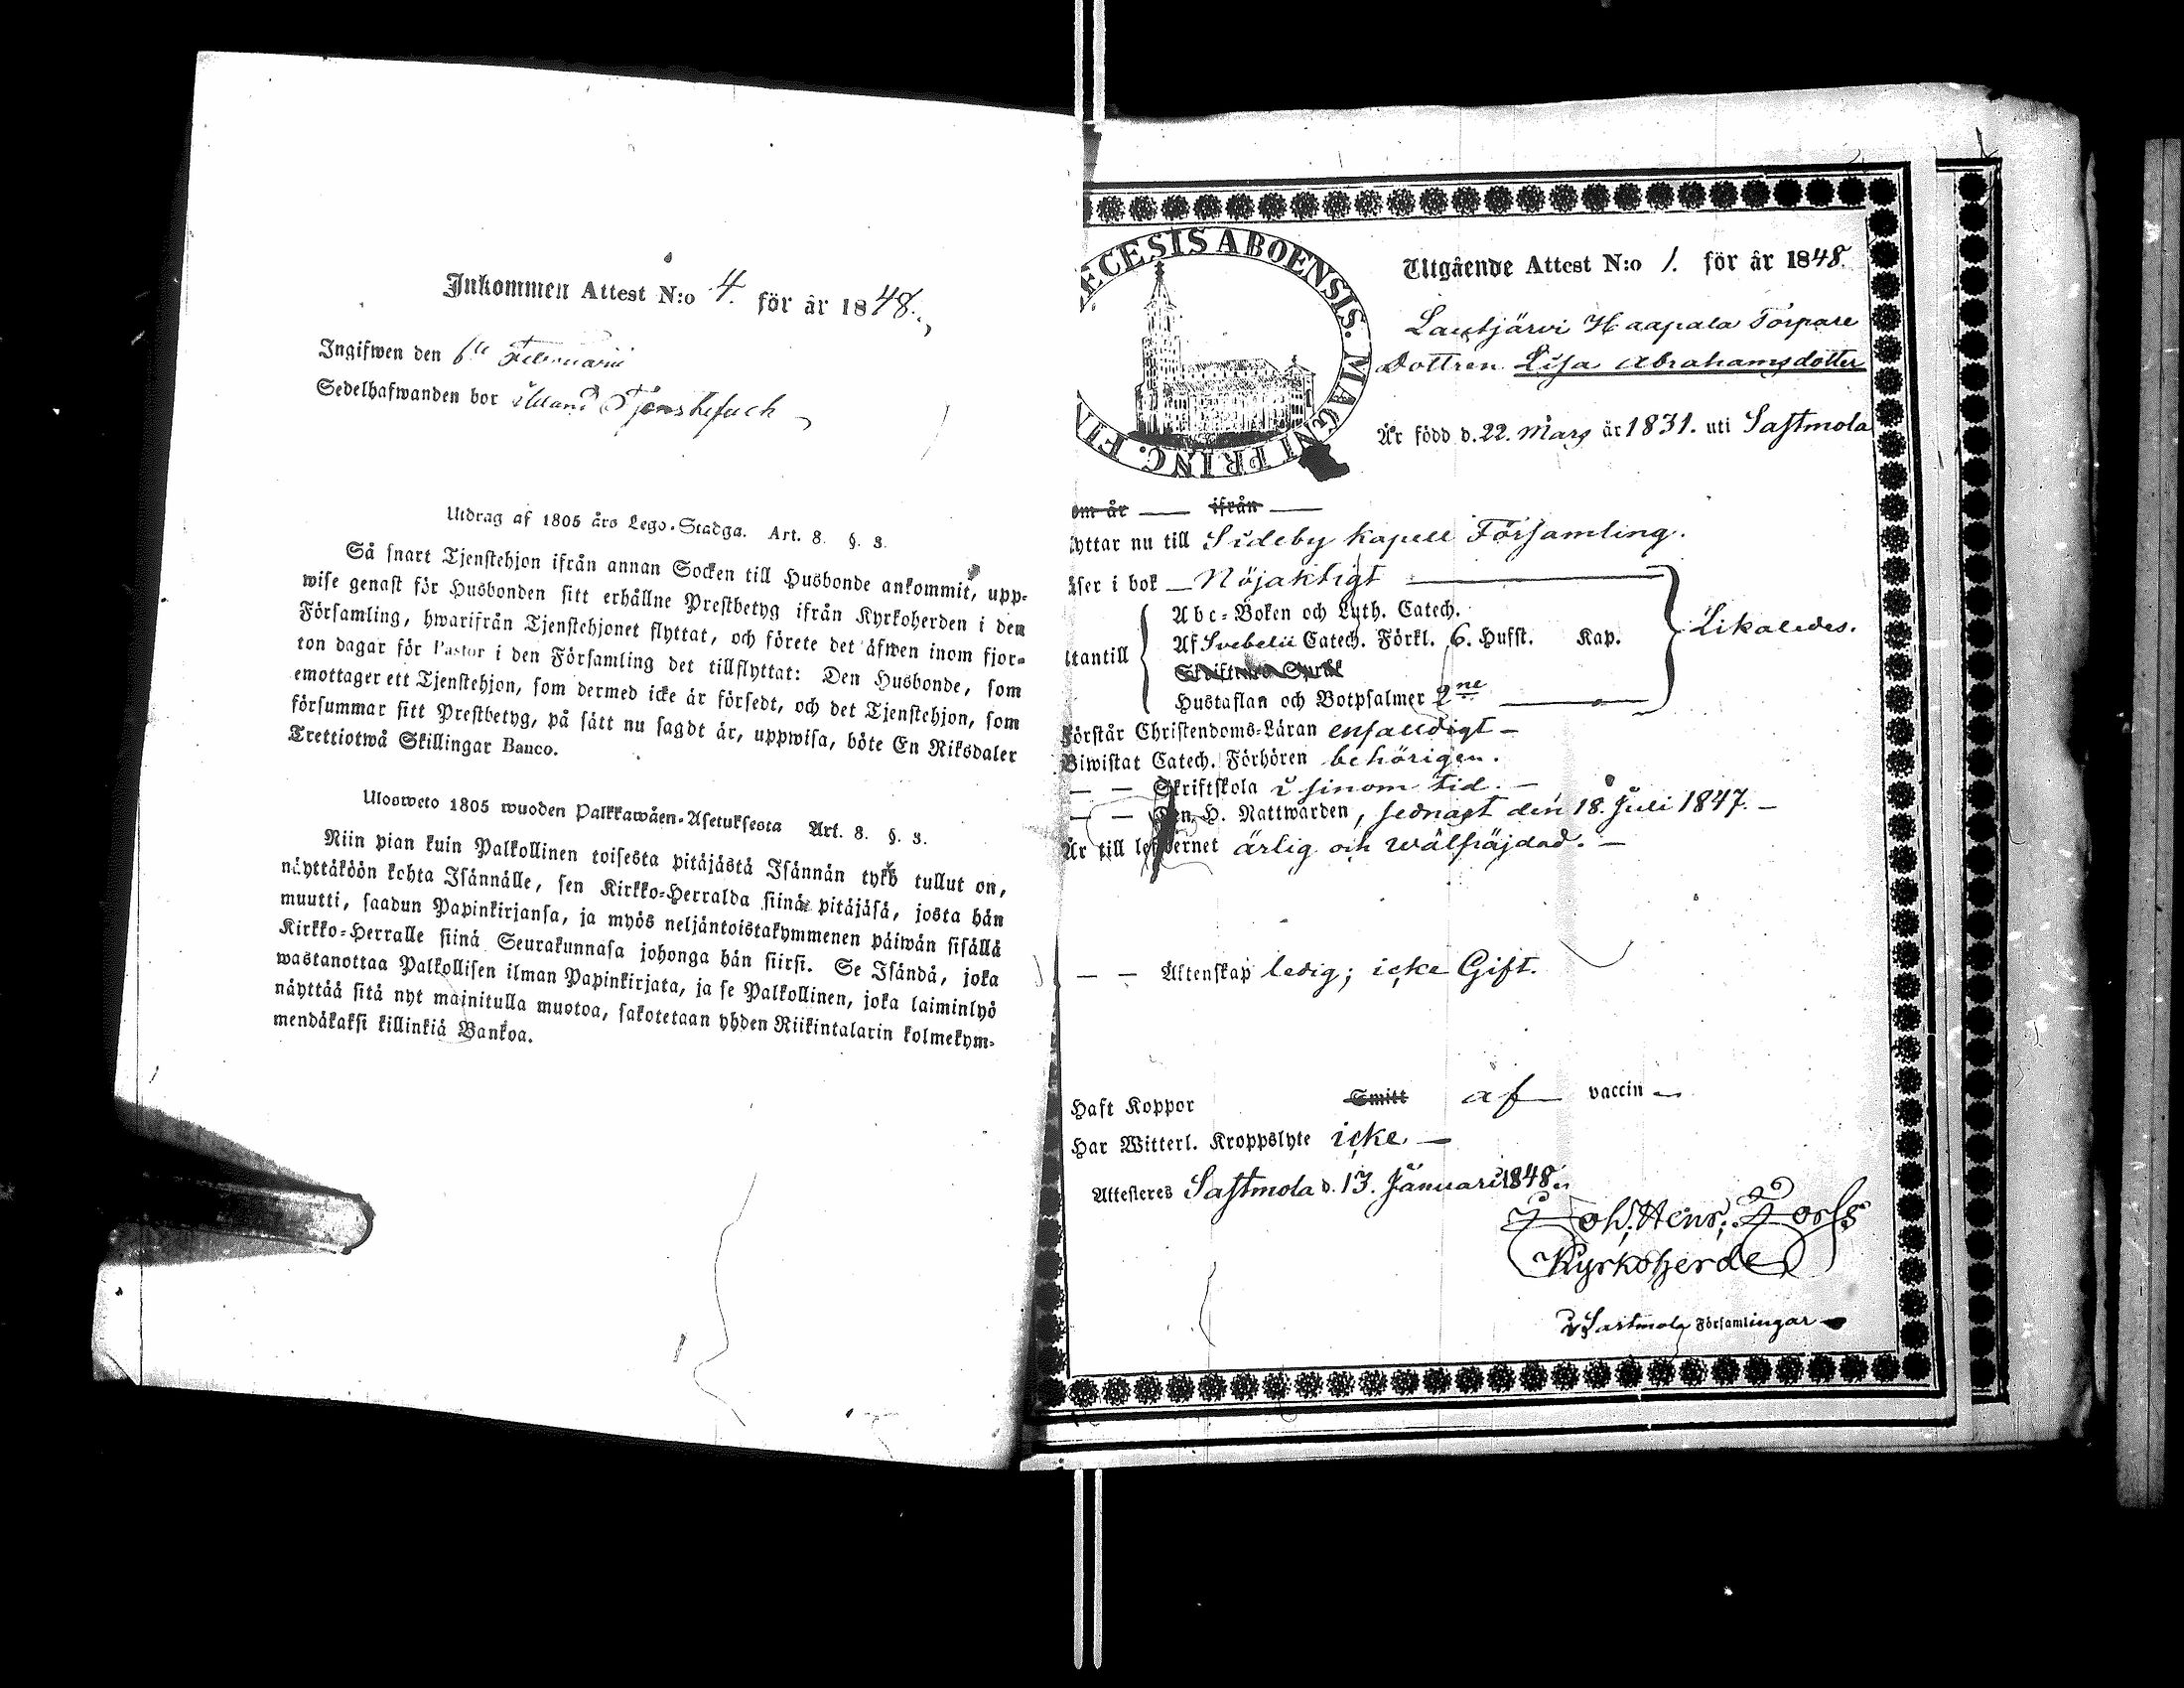 Inkommen Attest N:o 4. för år 1848.
Ingifwen den 6te Februarii
Sedelhafwanden bor utan Tjenst
Utdrag af 1805 års Lego-Stadga. Art. 8. §. 3.
Så snart Tjenstehjon ifrån annan Socken till Husbonde ankommit, upp-
wise genast för Husbonden sitt erhållne Prestbetyg ifrån Kyrkoherden i den
Församling, hwarifrån Tjenstehjonet flyttat, och förete det äfwen inom fjor-
ton dagar för Pastor i den Församling det tillflyttat: Den Husbonde, som
emottager ett Tjenstehjon, som dermed icke är försedt, och det Tjenstehjon, som
försummar sitt Prestbetyg, på sätt nu sagdt är, uppwisa, böte En Riksdaler
Trettiotwå Skillingar Banco.
Ulosweto 1805 wuoden Palkkawäen-Asetuksesta Art. 8. §. 3.
Niin pian kuin Palkollinen toisesta pitäjästä Isännän tykö tullut on,
näyttäköön kohta Isännälle, sen Kirkko-Herralda siinä pitäjäsä, josta hän
muutti, saadun Papinkirjansa, ja myös neljäntoistakymmenen päiwän sisällä
Kirkko-Herralle siinä Seurakunnasa johonga hän siirsi. Se Isändä, joka
wastanottaa Palkollisen ilman Papinkirjata, ja se Palkollinen, joka laiminlyö
näyttää sitä nyt mainitulla muotoa, sakotetaan yhden Riikintalarin kolmekym-
mendäkaksi killinkiä Bankoa.
ECESIS ABOENSIS. MAGNI PRINC. FIN
Utgående Attest N:o 1. för år 1848.
Lautjärvi Haapala Torpare
Dottren Lisa Abrahamsdotter
Är född d. 22. Mars år 1831. uti Sastmola
om år — ifrån —
lyttar nu till Sideby kapell Församling.
äser i bok — Nöjaktigt —
Abc-Boken och Luth. Catech.
Af Svebelii Catech. Förkl. 6. Hufst. Kap.
tantill
Likaledes.
Skriftens Språk
Hustaflan och Botpsalmer 2ne —
Förstår Christendoms-Läran enfaldigt —
Biwistat Catech. Förhören behörigen.
— — Skriftskola i sinom tid. —
— — Den H. Nattwarden, sednast den 18. Juli 1847. —
Är till lefwernet ärlig och wälfräjdad. —
— — Äktenskap ledig; icke Gift.
Haft Koppor Smitt af vaccin —
Har Witterl. Kroppslyte icke —
Attesteres Sastmola d. 13. Januari 1848.
Joh. Henr. Forss
Kyrkoherde
i Sastmola Församlingar